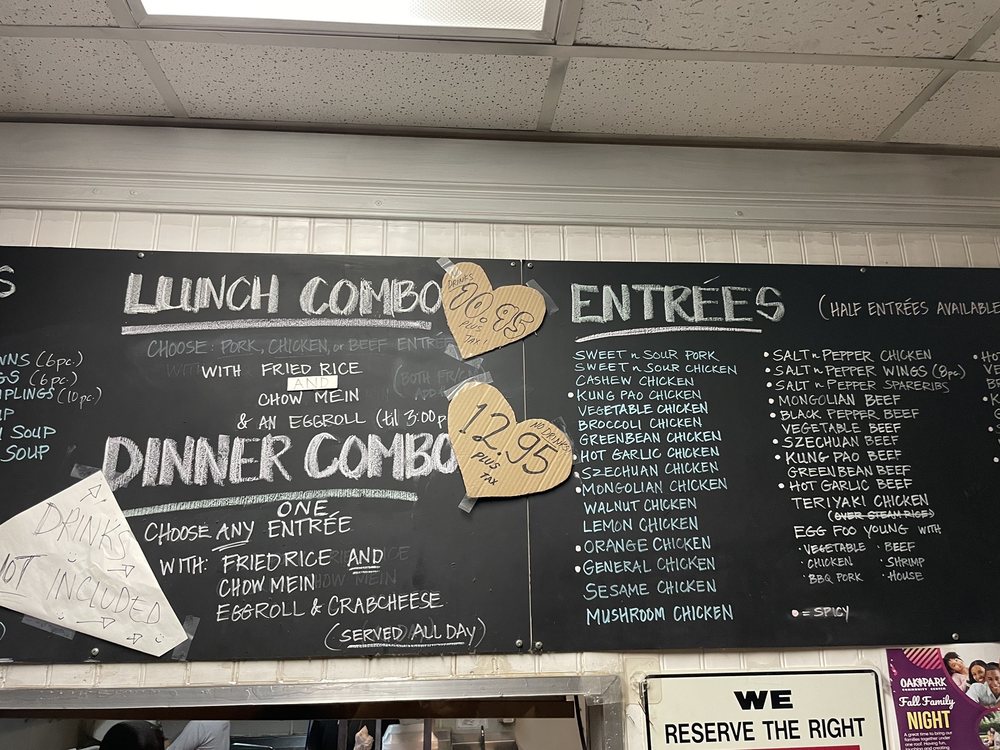 S
WNS (6pc.)
GS (6pc.)
MPLINGS (10pc.)
UP
SOUP
SOUP
DRINKS
NOT INCLUDED
LUNCH COMBO
CHOOSE: PORK, CHICKEN, or BEEF ENTRÉE
WITH FRIED RICE
AND
CHOW MEIN
& AN EGGROLL (til 3:00 p
DRINKS
10.95
PLUS
TAX!
DINNER COMBO
ONE
CHOOSE ANY ENTRÉE
WITH: FRIED RICE AND
CHOW MEIN
EGGROLL & CRABCHEESE
(SERVED ALL DAY)
NO DRINKS
12.95
PLUS
TAX
ENTRÉES (HALF ENTRÉES AVAILABLE
SWEET n SOUR PORK
SWEET n SOUR CHICKEN
CASHEW CHICKEN
• KUNG PAO CHICKEN
VEGETABLE CHICKEN
BROCCOLI CHICKEN
GREENBEAN CHICKEN
• HOT GARLIC CHICKEN
• SZECHUAN CHICKEN
• MONGOLIAN CHICKEN
WALNUT CHICKEN
LEMON CHICKEN
• ORANGE CHICKEN
• GENERAL CHICKEN
SESAME CHICKEN
MUSHROOM CHICKEN
• SALT n PEPPER CHICKEN
• SALT n PEPPER WINGS (8pc)
• SALT n PEPPER SPARERIBS
• MONGOLIAN BEEF
• BLACK PEPPER BEEF
VEGETABLE BEEF
• SZECHUAN BEEF
• KUNG PAO BEEF
GREENBEAN BEEF
• HOT GARLIC BEEF
TERIYAKI CHICKEN
(OVER STEAM RICE)
EGG FOO YOUNG WITH
• VEGETABLE • BEEF
• CHICKEN • SHRIMP
• BBQ PORK • HOUSE
• = SPICY
WE
RESERVE THE RIGHT
OAK PARK
COMMUNITY CENTER
Fall Family
NIGHT
A great time to bring out
families to enjoy